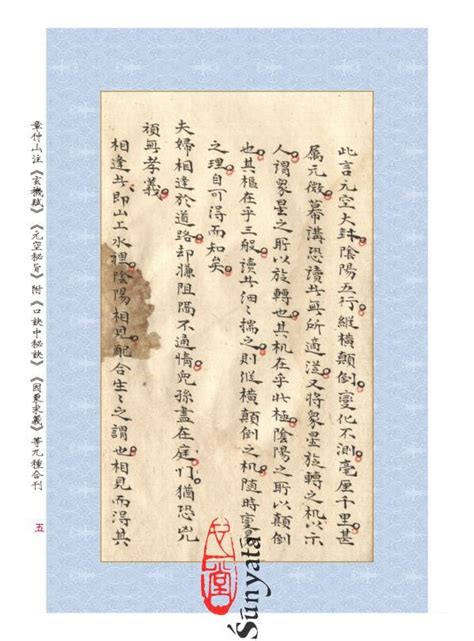 此言元空大卦陰陽五行縱橫顛倒變化不測毫厘千里甚
屬元微幕講恐讀者無所適從又將眾星旋轉之机以示
人謂眾星之所以旋轉也其机在乎北極陰陽之所以顛倒
也其樞在乎三般讀者細〻揣之則縱橫顛倒之机隨時變易
之理自可得而知矣
夫婦相逢於道路却慊阻隔不通情兒孫盡在庭们猶恐兇
頑無孝義
相逢者即山上水裡陰陽相見配合生〻之謂也相見而得其
章仲山注《玄機賦》《元空秘旨》附《口訣中秘訣》《因象求義》等九種合刊
五
心一堂
Śūnyatā